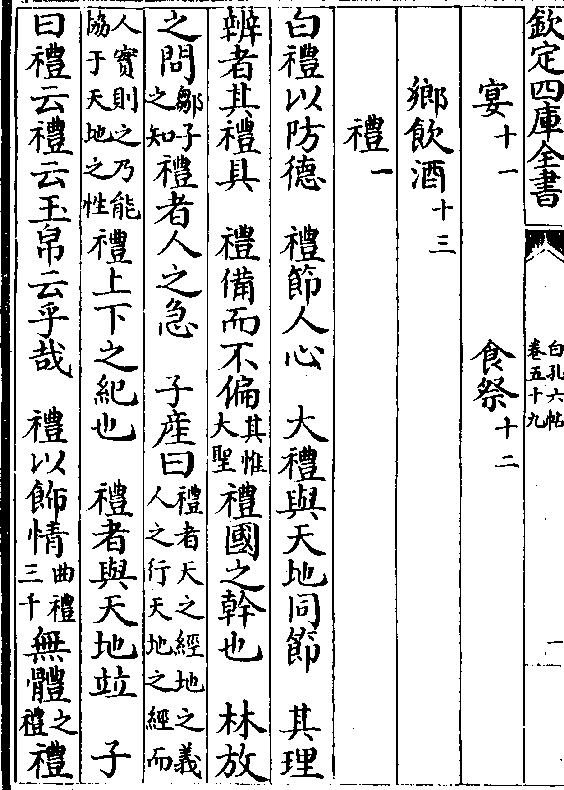 欽定四庫全書
白孔六帖
卷五十九
一
宴十一　食祭十二
鄉飲酒十三
禮一
白禮以防德　禮節人心　大禮與天地同節　其理
辨者其禮具　禮備而不偏其惟大聖禮國之幹也　林放
之問鄒子之知禮者人之急　子產曰禮者天之經地之義人之行天地之經而
人實則之乃能協于天地之性禮上下之紀也　禮者與天地竝　子
曰禮云禮云玉帛云乎哉　禮以飾情曲禮三千無體之禮禮